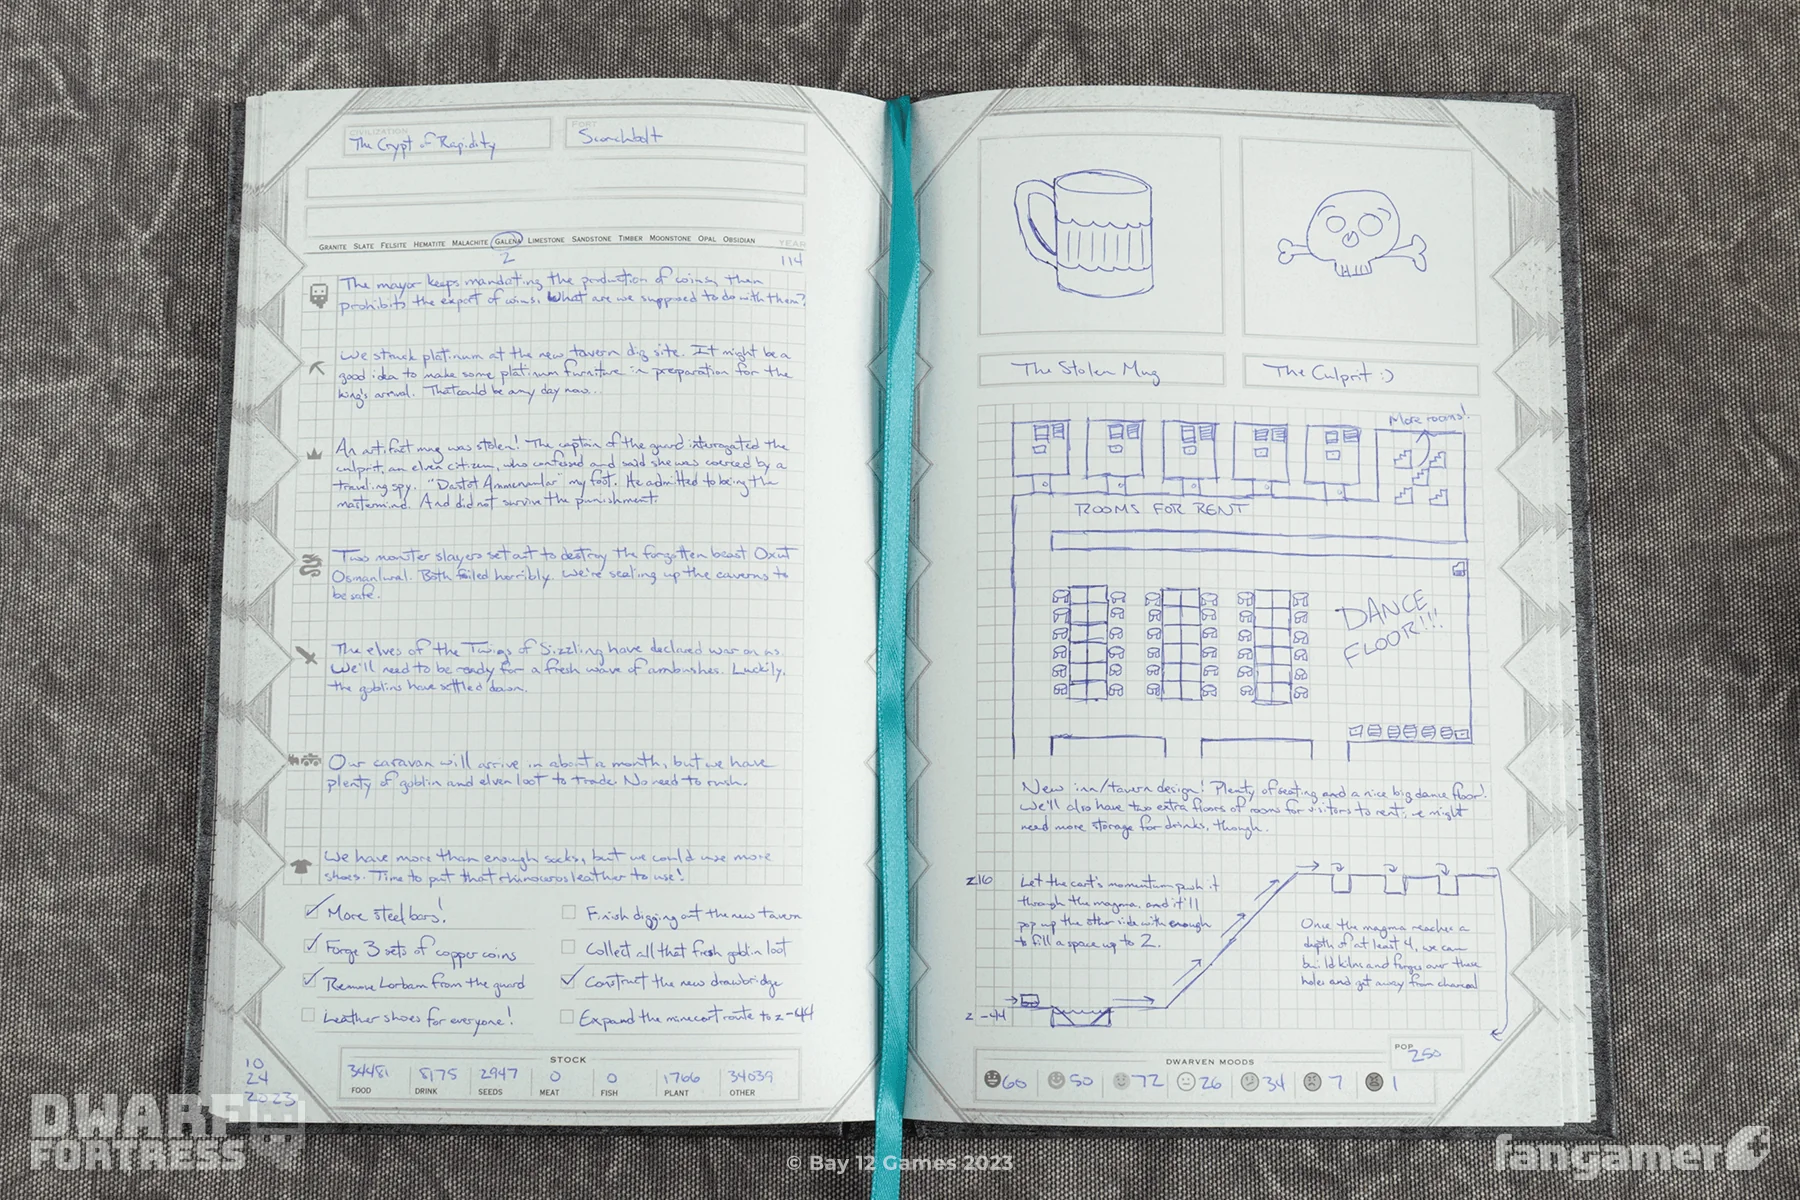 CIVILIZATION
The Crypt of Rapidity
FORT
Scorchbolt
GRANITE SLATE FELSITE HEMATITE MALACHITE GALENA LIMESTONE SANDSTONE TIMBER MOONSTONE OPAL OBSIDIAN
YEAR
2
114
The mayor keeps mandating the production of coins, then
prohibits the export of coins. What are we supposed to do with them?
We struck platinum at the new tavern dig site. It might be a
good idea to make some platinum furniture in preparation for the
king's arrival. That could be any day now...
An artifact mug was stolen! The captain of the guard interrogated the
culprit, an elven citizen, who confessed and said she was coerced by a
traveling spy. "Dastot Ammenanlar" my foot. He admitted to being the
mastermind. And did not survive the punishment.
Two monster slayers set out to destroy the forgotten beast Oxut
Osmanlural. Both failed horribly. We're sealing up the caverns to
be safe.
The elves of the Twigs of Sizzling have declared war on us.
We'll need to be ready for a fresh wave of ambushes. Luckily,
the goblins have settled down.
Our caravan will arrive in about a month, but we have
plenty of goblin and elven loot to trade. No need to rush.
We have more than enough socks, but we could use more
shoes. Time to put that rhinoceros leather to use!
More steel bars!
Forge 3 sets of copper coins
Remove Lorbam from the guard
Leather shoes for everyone!
Finish digging out the new tavern
Collect all that fresh goblin loot
Construct the new drawbridge
Expand the minecart route to z-44
10
24
2023
STOCK
34481 8175 2947 0 0 1766 34039
FOOD DRINK SEEDS MEAT FISH PLANT OTHER
The Stolen Mug
The Culprit :)
More rooms!
ROOMS FOR RENT
DANCE
FLOOR!!!
New inn/tavern design! Plenty of seating and a nice big dance floor!
We'll also have two extra floors of rooms for visitors to rent; we might
need more storage for drinks, though.
z16
Let the cart's momentum push it
through the magma, and it'll
pop up the other side with enough
to fill a space up to 2.
z -44
Once the magma reaches a
depth of at least 4, we can
build kilns and forges over these
holes and get away from charcoal
POP
250
DWARVEN MOODS
60 50 72 26 34 7 1
DWARF
FORTRESS
© Bay 12 Games 2023
fangamer